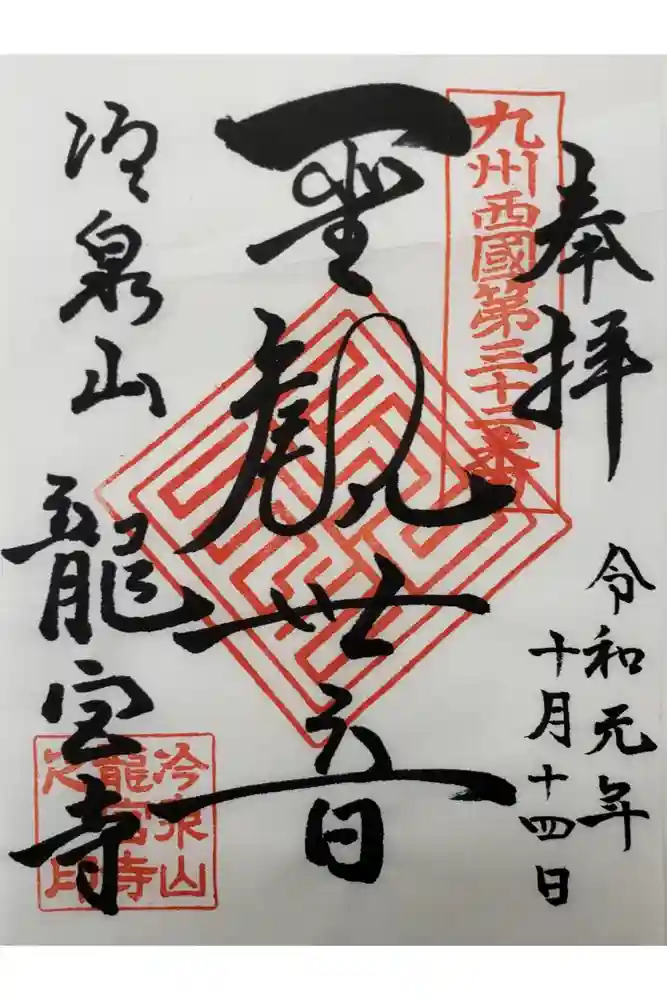 奉拝
令和元年
十月十四日
九州西國第三十二番
聖観世音
冷泉山
龍宮寺
冷泉山
龍宮寺
之印